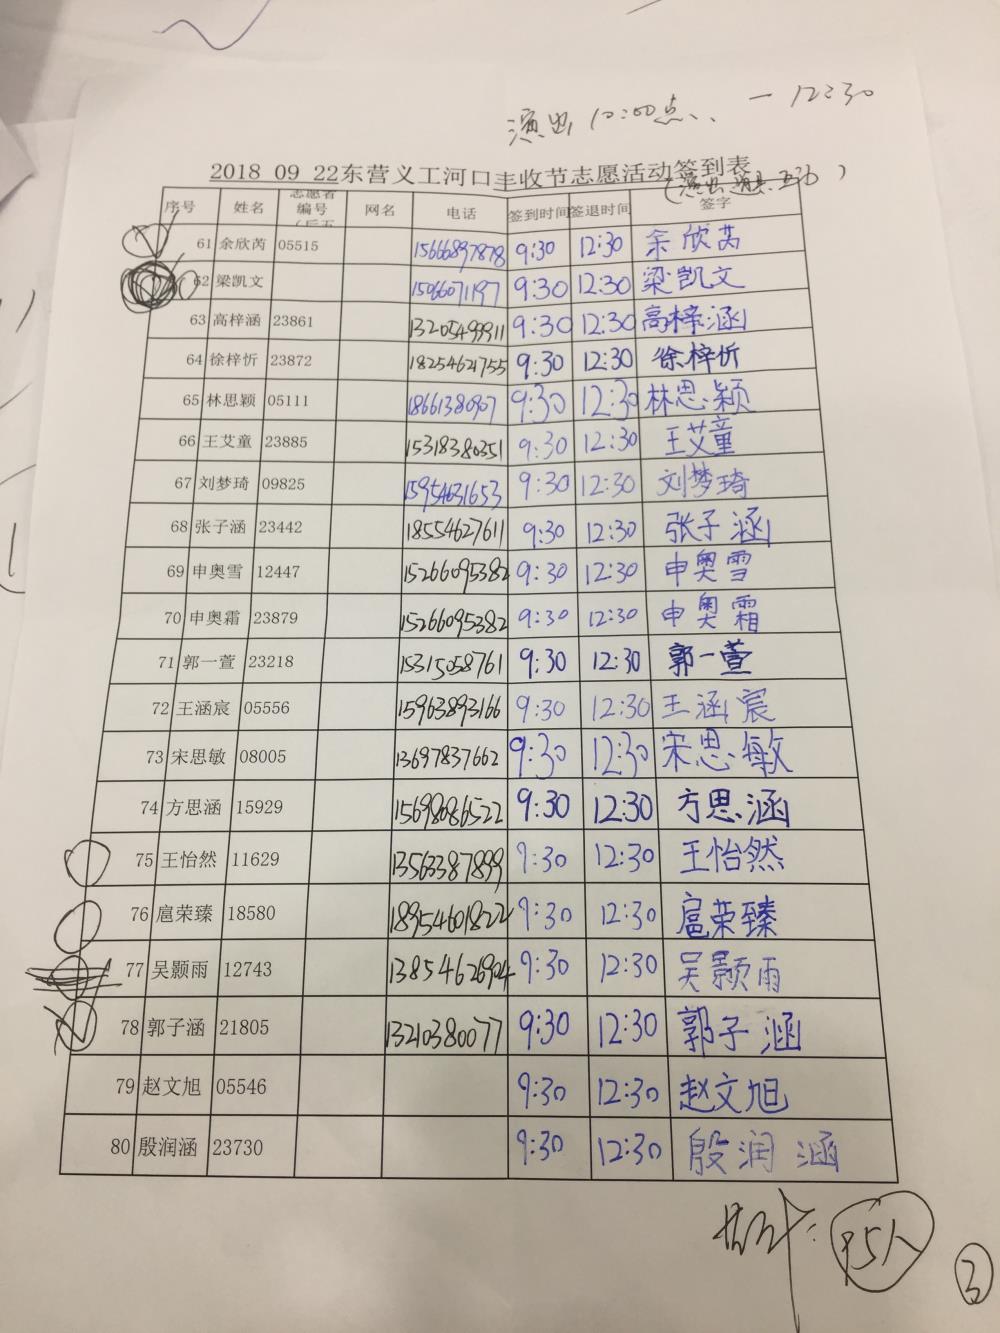 演出 10:00点、、 — 12:30
2018 09 22东营义工河口丰收节志愿活动签到表
序号 姓名 志愿者编号 网名 电话 签到时间 签退时间 签字
61 余欣芮 05515 15666897878 9:30 12:30 余欣芮
62 梁凯文 15066071197 9:30 12:30 梁凯文
63 高梓涵 23861 13205499911 9:30 12:30 高梓涵
64 徐梓忻 23872 18254621755 9:30 12:30 徐梓忻
65 林思颖 05111 18661380907 9:30 12:30 林思颖
66 王艾童 23885 15318380351 9:30 12:30 王艾童
67 刘梦琦 09825 15954631653 9:30 12:30 刘梦琦
68 张子涵 23442 18554627611 9:30 12:30 张子涵
69 申奥雪 12447 15266095382 9:30 12:30 申奥雪
70 申奥霜 23879 15266095382 9:30 12:30 申奥霜
71 郭一萱 23218 15315058761 9:30 12:30 郭一萱
72 王涵宸 05556 15963893166 9:30 12:30 王涵宸
73 宋思敏 08005 13697837662 9:30 12:30 宋思敏
74 方思涵 15929 15698086522 9:30 12:30 方思涵
75 王怡然 11629 13563387899 9:30 12:30 王怡然
76 扈荣臻 18580 18954601822 9:30 12:30 扈荣臻
77 吴颢雨 12743 13854626904 9:30 12:30 吴颢雨
78 郭子涵 21805 13210380077 9:30 12:30 郭子涵
79 赵文旭 05546 9:30 12:30 赵文旭
80 殷润涵 23730 9:30 12:30 殷润涵
95人
3